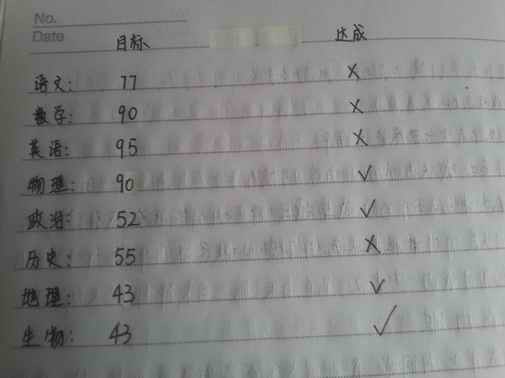 No.
Date
目标 达成
语文: 77 ×
数学: 90 ×
英语: 95 ×
物理: 90 ✓
政治: 52 ✓
历史: 55 ×
地理: 43 ✓
生物: 43 ✓